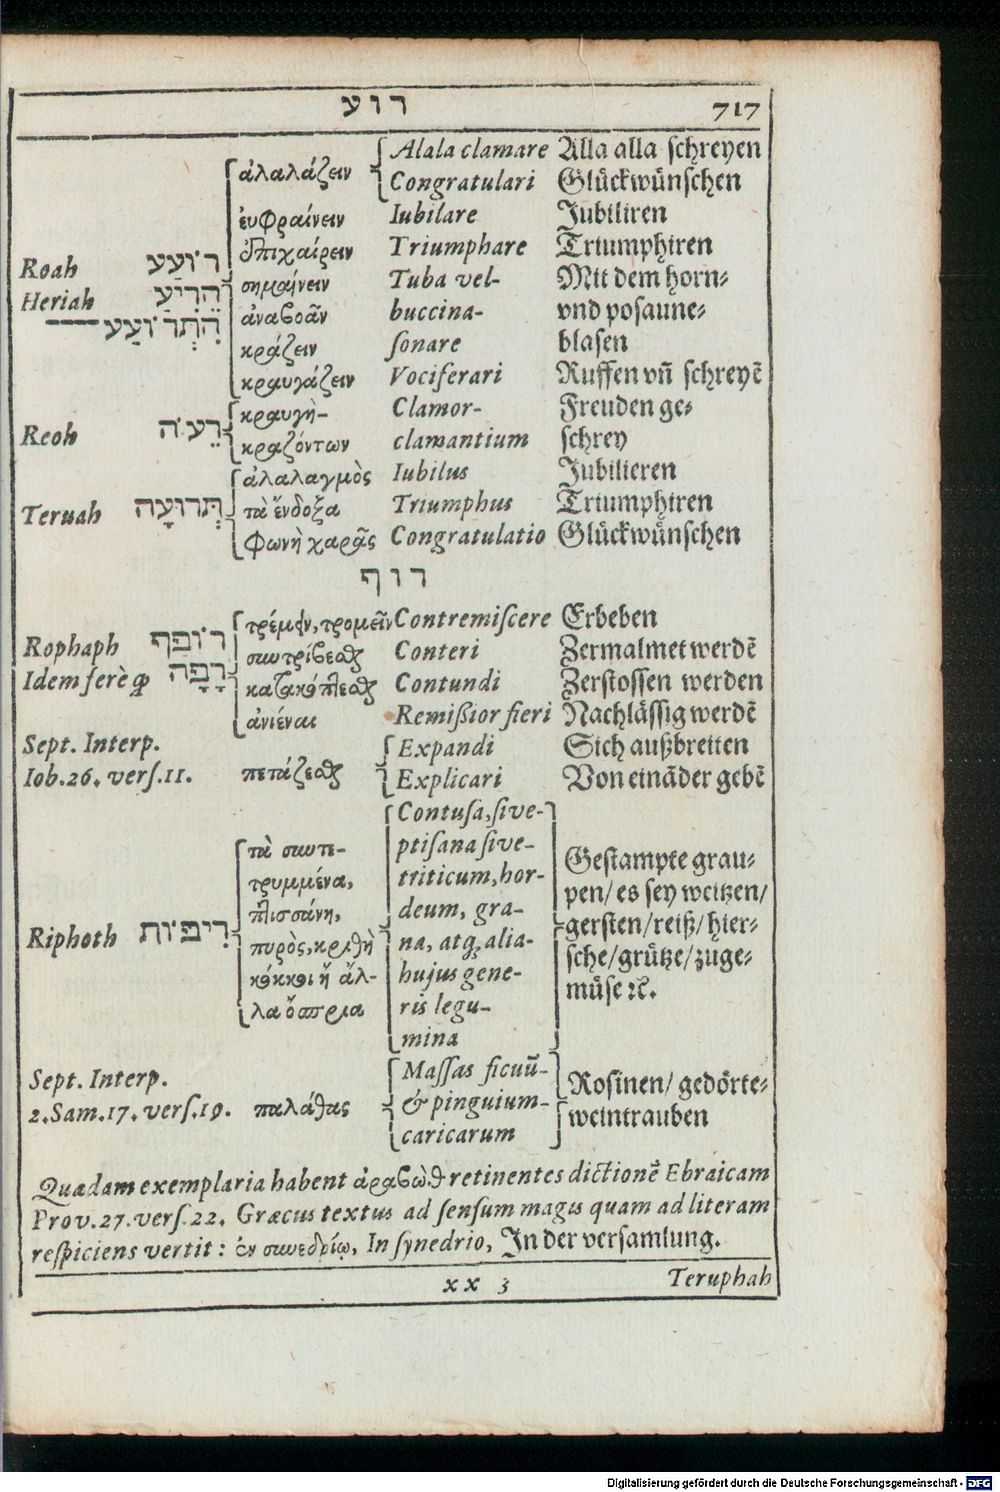 רוע 717
ἀλαλάζειν Alala clamare Alla alla schreyen
Congratulari Glückwünschen
ἐυφραίνειν Iubilare Jubiliren
ἐπιχαίρειν Triumphare Triumphiren
Roah רוֹעַע σημαίνειν Tuba vel- Mit dem horn-
Heriah הֵרִיעַ ἀναβοᾶν buccina- vnd posaune-
הִתְרוֹעַע κράζειν sonare blasen
κραυγάζειν Vociferari Ruffen vñ schreyẽ
Reoh רֵעֹה κραυγὴ- Clamor- Freuden ge-
κραζόντων clamantium schrey
ἀλαλαγμὸς Iubilus Jubilieren
Teruah תְּרוּעָה τὰ ἔνδοξα Triumphus Triumphiren
φωνὴ χαρᾶς Congratulatio Glückwünschen
רוף
Rophaph רוֹפַף τρέμειν, τρομεῖν Contremiscere Erbeben
συντρίβεσθαι Conteri Zermalmet werdẽ
Idem ferè qȝ רָפָה κατακόπτεσθαι Contundi Zerstossen werden
ἀνιέναι Remißior fieri Nachlässig werdẽ
Sept. Interp. Expandi Sich außbreiten
Iob. 26. vers. 11. πετάζεσθαι Explicari Von einãder gebẽ
Contusa, sive-
τὰ συντε- ptisana sive- Gestampte grau-
τρυμμένα, triticum, hor- pen/ es sey weitzen/
πτισσάνη, deum, gra- gersten/ reiß/ hier-
Riphoth רִיפוֹת πυρὸς, κριθὴ na, atqȝ alia- sche/ grütze/ zuge-
κόκκοι ἢ ἄλ- hujus gene- müse ꝛc.
λα ὄσπρια ris legu-
mina
Sept. Interp. Massas ficuũ- Rosinen/ gedörte-
2. Sam. 17. vers. 19. παλάθας & pinguium- weintrauben
caricarum
Quædam exemplaria habent ἀραβὼθ retinentes dictionẽ Ebraicam
Prov. 27. vers. 22. Græcus textus ad sensum magis quam ad literam
respiciens vertit: ἐν συνεδρίῳ, In synedrio, In der versamlung.
xx 3 Teruphah
Digitalisierung gefördert durch die Deutsche Forschungsgemeinschaft - DFG